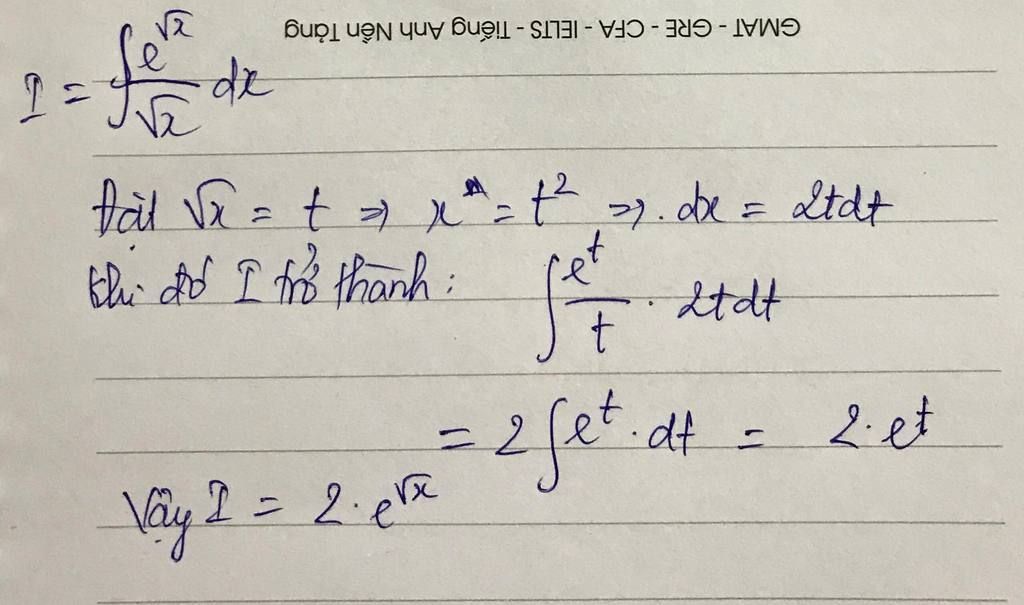 GMAT - GRE - CFA - IELTS - Tiếng Anh Nền Tảng
I = ∫ e^√x / √x dx
Đặt √x = t ⇒ x = t² ⇒ . dx = 2tdt
Khi đó I trở thành : ∫ e^t / t . 2tdt
= 2 ∫ e^t . dt = 2 . e^t
Vậy I = 2 . e^√x